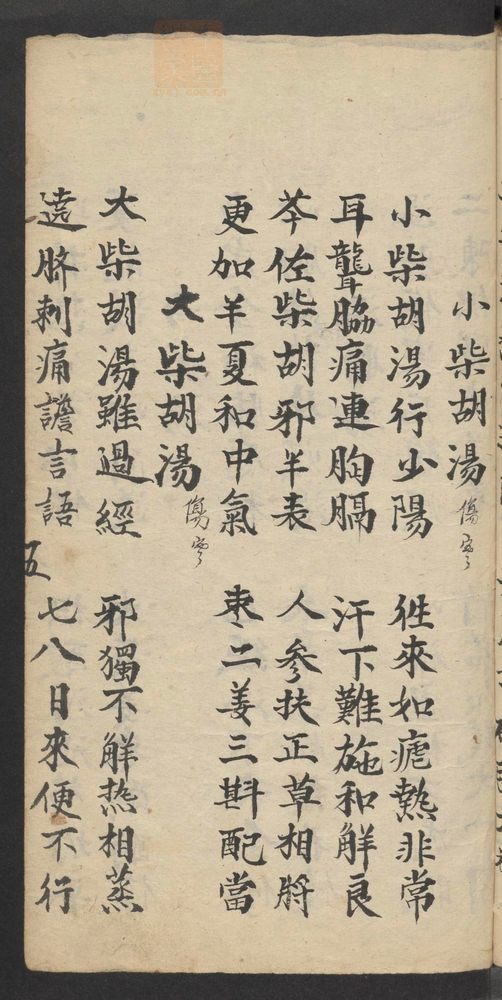 小柴胡湯 傷寒
小柴胡湯行少陽 徃來如瘧熱非常
耳聾脇痛連胸膈 汗下難施和解良
芩佐柴胡邪半表 人參扶正草相將
更加半夏和中氣 枣二姜三斟配當
大柴胡湯 傷寒
大柴胡湯雖過經 邪獨不解热相蒸
遶臍刺痛譫言語 七八日來便不行
五